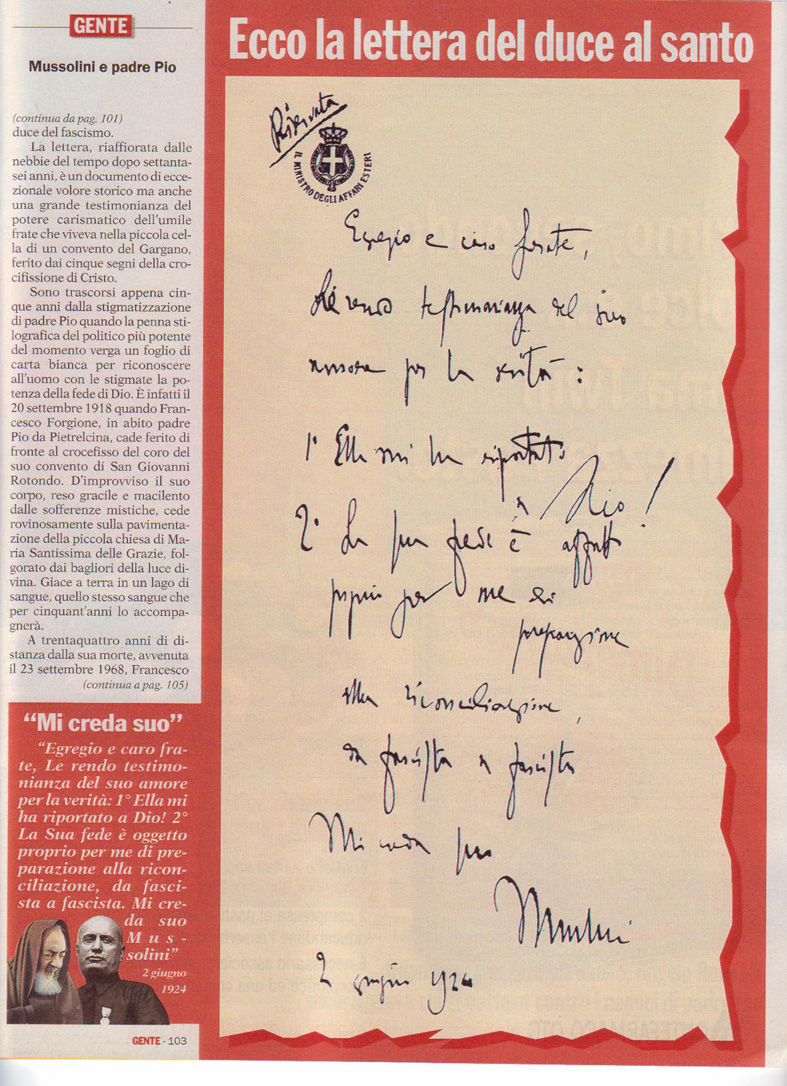 GENTE
Mussolini e padre Pio
(continua da pag. 101)
duce del fascismo.
La lettera, riaffiorata dalle
nebbie del tempo dopo settanta-
sei anni, è un documento di ecce-
zionale volore storico ma anche
una grande testimonianza del
potere carismatico dell'umile
frate che viveva nella piccola cel-
la di un convento del Gargano,
ferito dai cinque segni della cro-
cifissione di Cristo.
Sono trascorsi appena cin-
que anni dalla stigmatizzazione
di padre Pio quando la penna sti-
lografica del politico più potente
del momento verga un foglio di
carta bianca per riconoscere
all'uomo con le stigmate la po-
tenza della fede di Dio. È infatti il
20 settembre 1918 quando Fran-
cesco Forgione, in abito padre
Pio da Pietrelcina, cade ferito di
fronte al crocefisso del coro del
suo convento di San Giovanni
Rotondo. D'improvviso il suo
corpo, reso gracile e macilento
dalle sofferenze mistiche, cede
rovinosamente sulla pavimenta-
zione della piccola chiesa di Ma-
ria Santissima delle Grazie, fol-
gorato dai bagliori della luce di-
vina. Giace a terra in un lago di
sangue, quello stesso sangue che
per cinquant'anni lo accompa-
gnerà.
A trentaquattro anni di di-
stanza dalla sua morte, avvenuta
il 23 settembre 1968, Francesco
(continua a pag. 105)
"Mi creda suo"
"Egregio e caro fra-
te, Le rendo testimo-
nianza del suo amore
per la verità: 1° Ella mi
ha riportato a Dio! 2°
La Sua fede è oggetto
proprio per me di pre-
parazione alla ricon-
ciliazione, da fasci-
sta a fascista. Mi cre-
da suo
Mus-
solini"
2 giugno
1924
GENTE - 103
Ecco la lettera del duce al santo
Riservata
IL MINISTRO DEGLI AFFARI ESTERI
Egregio e caro frate,
Le rendo testimonianza del suo
amore per la verità:
1° Ella mi ha riportato
a Dio!
2° La sua fede è oggetto
proprio per me di
preparazione
alla riconciliazione,
da fascista a fascista
Mi creda suo
Mussolini
2 giugno 1924